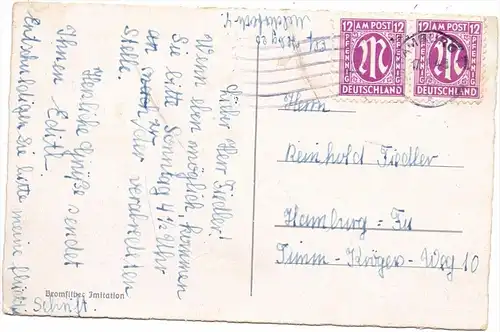 Lieber Herr Fiedler!
Wenn eben möglich, kommen
Sie bitte Sonntag 4 1/2 Uhr
an der verabredeten
Stelle.
Herzliche Grüße sendet
Ihnen Edith
Entschuldigen Sie bitte meine
Schrift.
Bromsilber Imitation
12 AM POST 12
PFENNIG PFENNIG
M
DEUTSCHLAND
12 AM POST 12
PFENNIG PFENNIG
M
DEUTSCHLAND
Herrn
Reinhold Fiedler
Hamburg = Fu
Timm-Kröger-Weg 10